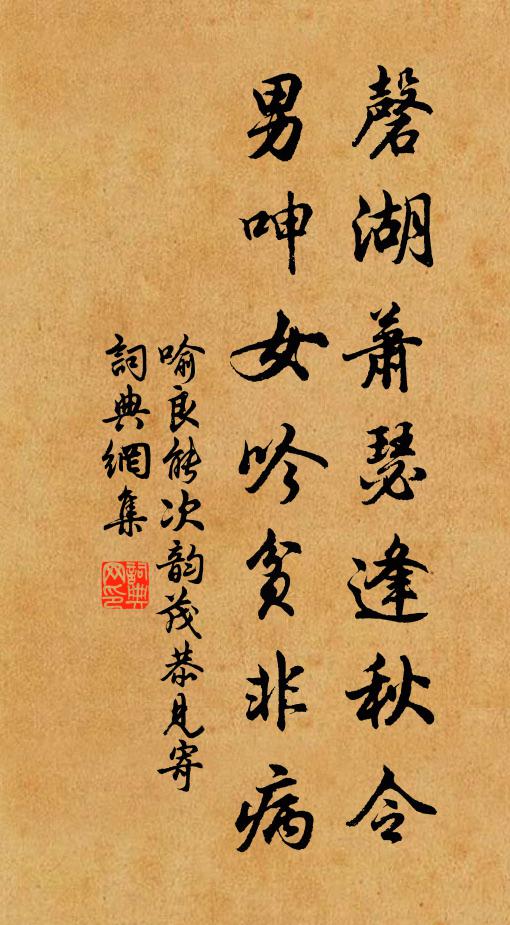 磬湖萧瑟逢秋令
男呻女吟贫非病
喻良能次韵茂恭見寄
詞典網集
詞典网印